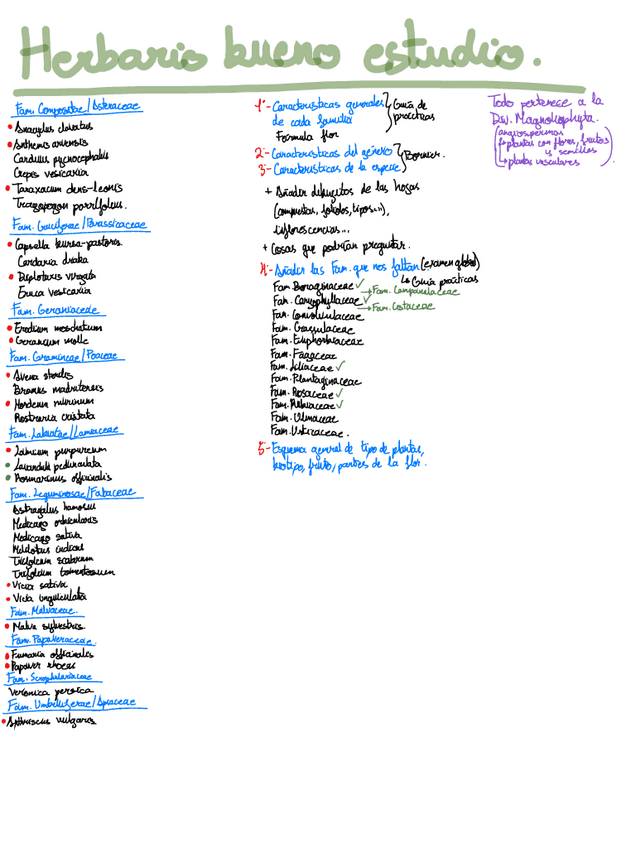 Herbario bueno estudio.
Fam. Compositae/Asteraceae
Anacyclus clavatus
Anthemis arvensis
Carduus pycnocephalus
Crepis vesicaria
Taraxacum dens-leonis
Tragopogon porrifolius.
Fam. Cruciferae/Brassicaceae
Capsella bursa-pastoris
Cardaria draba
Diplotaxis virgata
Eruca vesicaria
Fam. Geraniaceae
Erodium moschatum
Geranium molle
Fam. Gramineae/Poaceae
Avena sterilis
Bromus madritensis
Hordeum murinum
Rostraria cristata
Fam. Labiatae/Lamiaceae
Lamium purpureum
Lavandula pedunculata
Rosmarinus officinalis
Fam. Leguminosae/Fabaceae
Astragalus hamosus
Medicago orbicularis
Medicago sativa
Melilotus indicus
Trifolium scabrum
Trifolium tomentosum
Vicia sativa
Vicia unguiculata
Fam. Malvaceae.
Malva sylvestris
Fam. Papaveraceae.
Fumaria officinalis
Papaver rhoeas
Fam. Scrophulariaceae
Veronica persica
Fam. Umbelliferae/Apiaceae
Anthriscus vulgaris
1º- Características generales
de cada familia
Fórmula flor
Guía de
prácticas
2º- Características del género
3º- Características de la especie
Bonnier.
+ Añadir dibujitos de las hojas
(compuestas, foliolos, tipos...),
inflorescencias...
+ Cosas que podrían preguntar.
4º- Añadir las Fam. que nos faltan (examen global)
↳ Guía prácticas
Fam. Boraginaceae ✓
→ Fam. Campanulaceae
Fam. Caryophyllaceae ✓
→ Fam. Cistaceae
Fam. Convolvulaceae
Fam. Crassulaceae
Fam. Euphorbiaceae
Fam. Fagaceae
Fam. Liliaceae ✓
Fam. Plantaginaceae
Fam. Rosaceae ✓
Fam. Rubiaceae ✓
Fam. Ulmaceae
Fam. Urticaceae.
5- Esquema general de tipo de plantas,
biotipo, fruto, partes de la flor.
Todo pertenece a la
Div. Magnoliophyta.
(angiospermas
↳ plantas con flores, frutos
y semillas
↳ plantas vasculares)